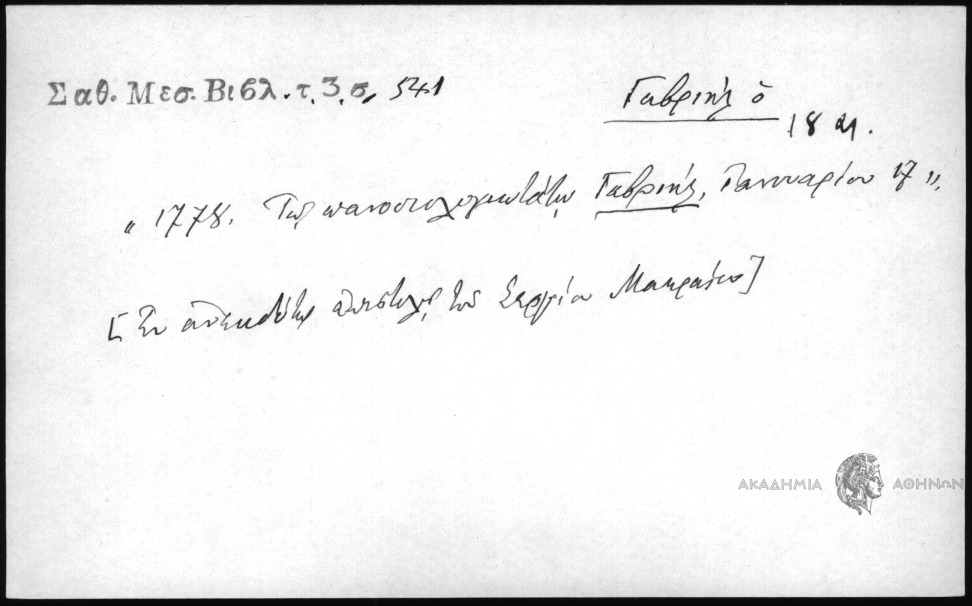 Σαθ. Μεσ. Βιβλ. τ. 3. σ. 541
Γαβριήλ ὁ
18 αι.
„ 1778. Τῷ πανοσιολογιωτάτῳ Γαβριήλ, Ἰανουαρίου 17 „.
[Ἐν ἀνεκδότῳ ἐπιστολῇ τοῦ Σεργίου Μακραίου]
ΑΚΑΔΗΜΙΑ ΑΘΗΝΩΝ